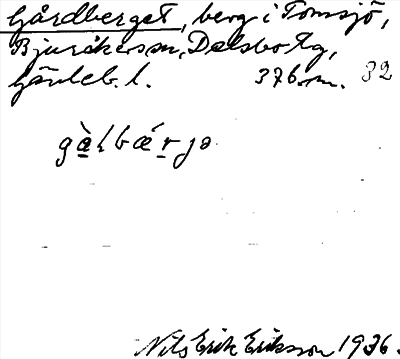 Gårdberget, berg i Tomsjö,
Bjuråkers sn, Delsbo tg,
Gävleb. l. 376. m. 32
gàɽbǽrjə
Nils Erik Eriksson 1936.